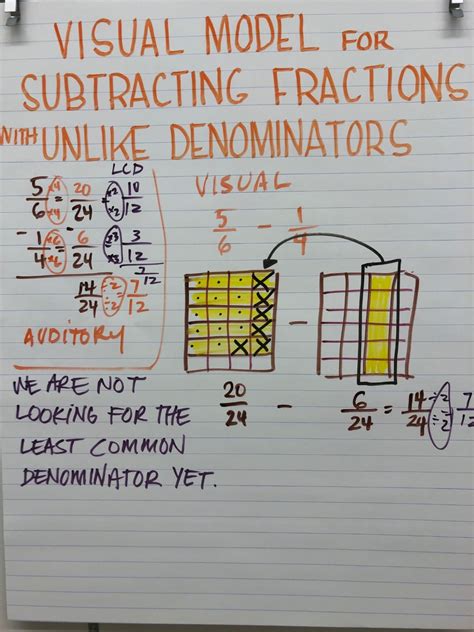 VISUAL MODEL FOR
SUBTRACTING FRACTIONS
WITH UNLIKE DENOMINATORS
LCD
5/6 ×4/×4 = 20/24 ÷2/÷2 10/12
- 1/4 ×6/×6 = 6/24 3/12
7/12
14/24 ÷2/÷2 = 7/12
AUDITORY
VISUAL
5/6 - 1/4
X
X
X
X
X X
-
20/24 - 6/24 = 14/24 ÷2/÷2 = 7/12
WE ARE NOT
LOOKING FOR THE
LEAST COMMON
DENOMINATOR YET.